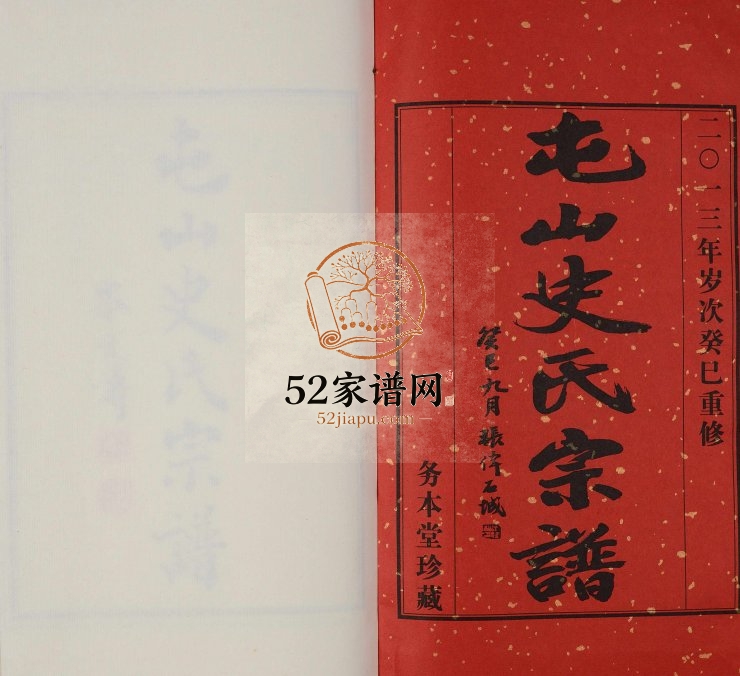 二〇一三年岁次癸巳重修
屯山史氏宗譜
癸巳九月 張偉石城
务本堂珍藏
52家谱网
52jiapu.com